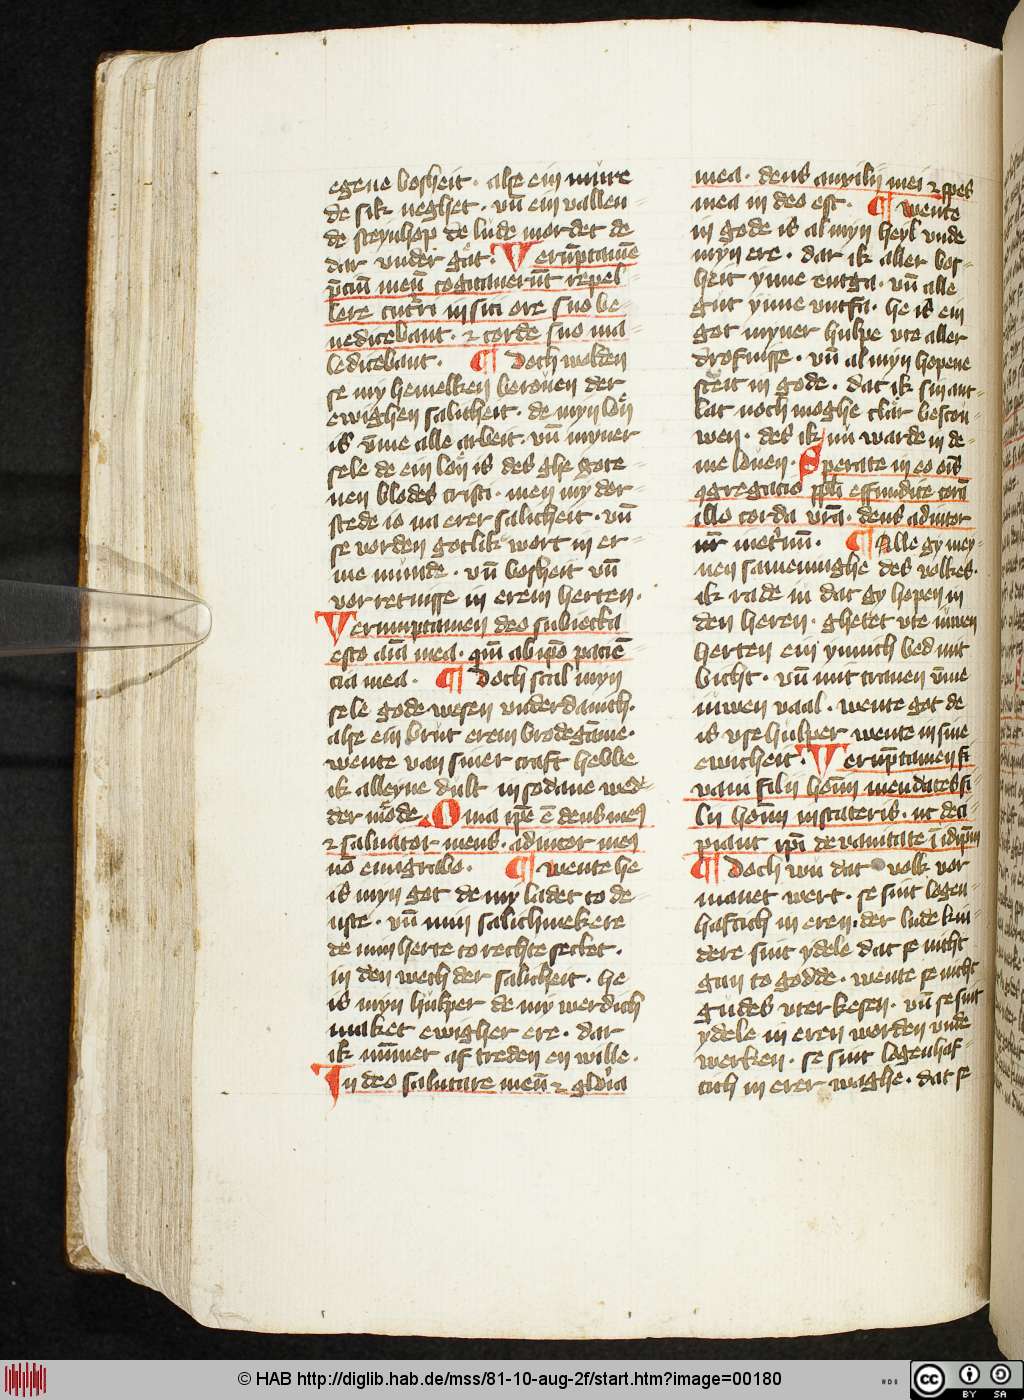 egene bosheit · alse ein mure
de sik neghet · vn̄ ein vallen
de steynhop de lude mordet de
dar vnder gat · Verūptamē
p̄ciū meū cogitauerūt repel
lere cucurri in siti ore suo be
nedicebant · ⁊ corde suo ma
ledicebant · ¶ Doch wolden
se my hemelken berouen der
ewighen salicheit · de myn lon
is vme alle arbeit · vn̄ myner
sele de ein lon is des ghe gote
nen blodes cristi · men my dor
stede io na erer salicheit · vn̄
se vorden gotlik wort in er
me munde · vn̄ bosheit vn̄
vorretnisse in erem herten ·
Verumptamen deo subiecta
esto aīa mea · qm̄ ab ip̄o paciē
cia mea · ¶ Doch scal myn
sele gode wesen vnderdanich ·
alse ein brut erem brodegāme ·
wente van siner craft hebbe
ik alleyne dult in sodane wed
der mode Quia ip̄e ē deus meꝯ
⁊ saluator meus · adiutor meꝯ
nō emigrabo · ¶ wente he
is myn got de my ladet to de
nste · vn̄ min salichmekere
de min herte to rechte secket ·
in den wech der salicheit · he
is myn hulper de my werdich
maket ewigher ere · dar
ik nūmer af treden en wille ·
In deo salutare meū ⁊ gloria
mea · deus auxilii mei ⁊ spes
mea in deo est · ¶ wente
in gode is al myn heyl vnde
myn ere · dar ik aller bos
heit ynne entga · vn̄ alle
gut ynne untfa · he is ein
got myner hulpe vte aller
drofnisse · vn̄ al myn hopene
steit in gode · dat ik sin ant
lat noch moghe clar bescou
wen · des ik nu warde in de
me louen · Sperate in eo oīs
ꝯgregacio pp̄li effundite corā
illo corda vr̄a · deus adiutor
nr̄ in eternū · ¶ Alle gy mey
nen sameninghe des volkes ·
ik rade iu dat gy hopen in
den heren · ghetet vte iuwen
herten ein ynnich bed mit
bicht · vn̄ mit tranen vm̄e
iuwen vaal · wente got de
is vse hulper wente in sine
ewicheit · Verūptamen fi
vani filii hom̄ mendaces fi
lii hom̄ in stateris · ut deci
piant ip̄i de vanitate ī idip̄m
¶ Doch wu dat volk vor
manet wert · se sint logen
haftich in eren · der lude kin
dere sint ydele dat se nicht
gan to godde · wente se nicht
gudes vterkesen · vn̄ se sint
ydele in eren worden vnde
werken · se sint logenhaf
tich in erer waghe · dat se
© HAB http://diglib.hab.de/mss/81-10-aug-2f/start.htm?image=00180
HAB
cc BY SA